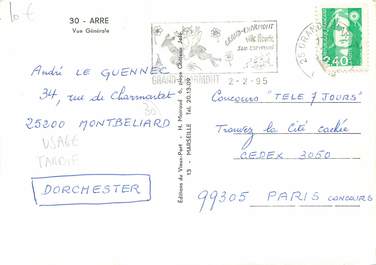 10 €
30 - ARRE
Vue Générale
André LE GUENNEC
34, rue de Charmontet
25200 MONTBELIARD
USAGE
TARDIF
DORCHESTER
Editions du Vieux-Port - H. Moutoud 6,
13 - MARSEILLE Tél. 20.13.09
GRAND-CHARMONT
GRAND-CHARMONT
Ville fleurie
son carnaval
2-2-95
25 GRAND
2,40
Concours "TELE 7 JOURS"
Trouvez la Cité cachée
CEDEX 3050
99305 PARIS CONCOURS